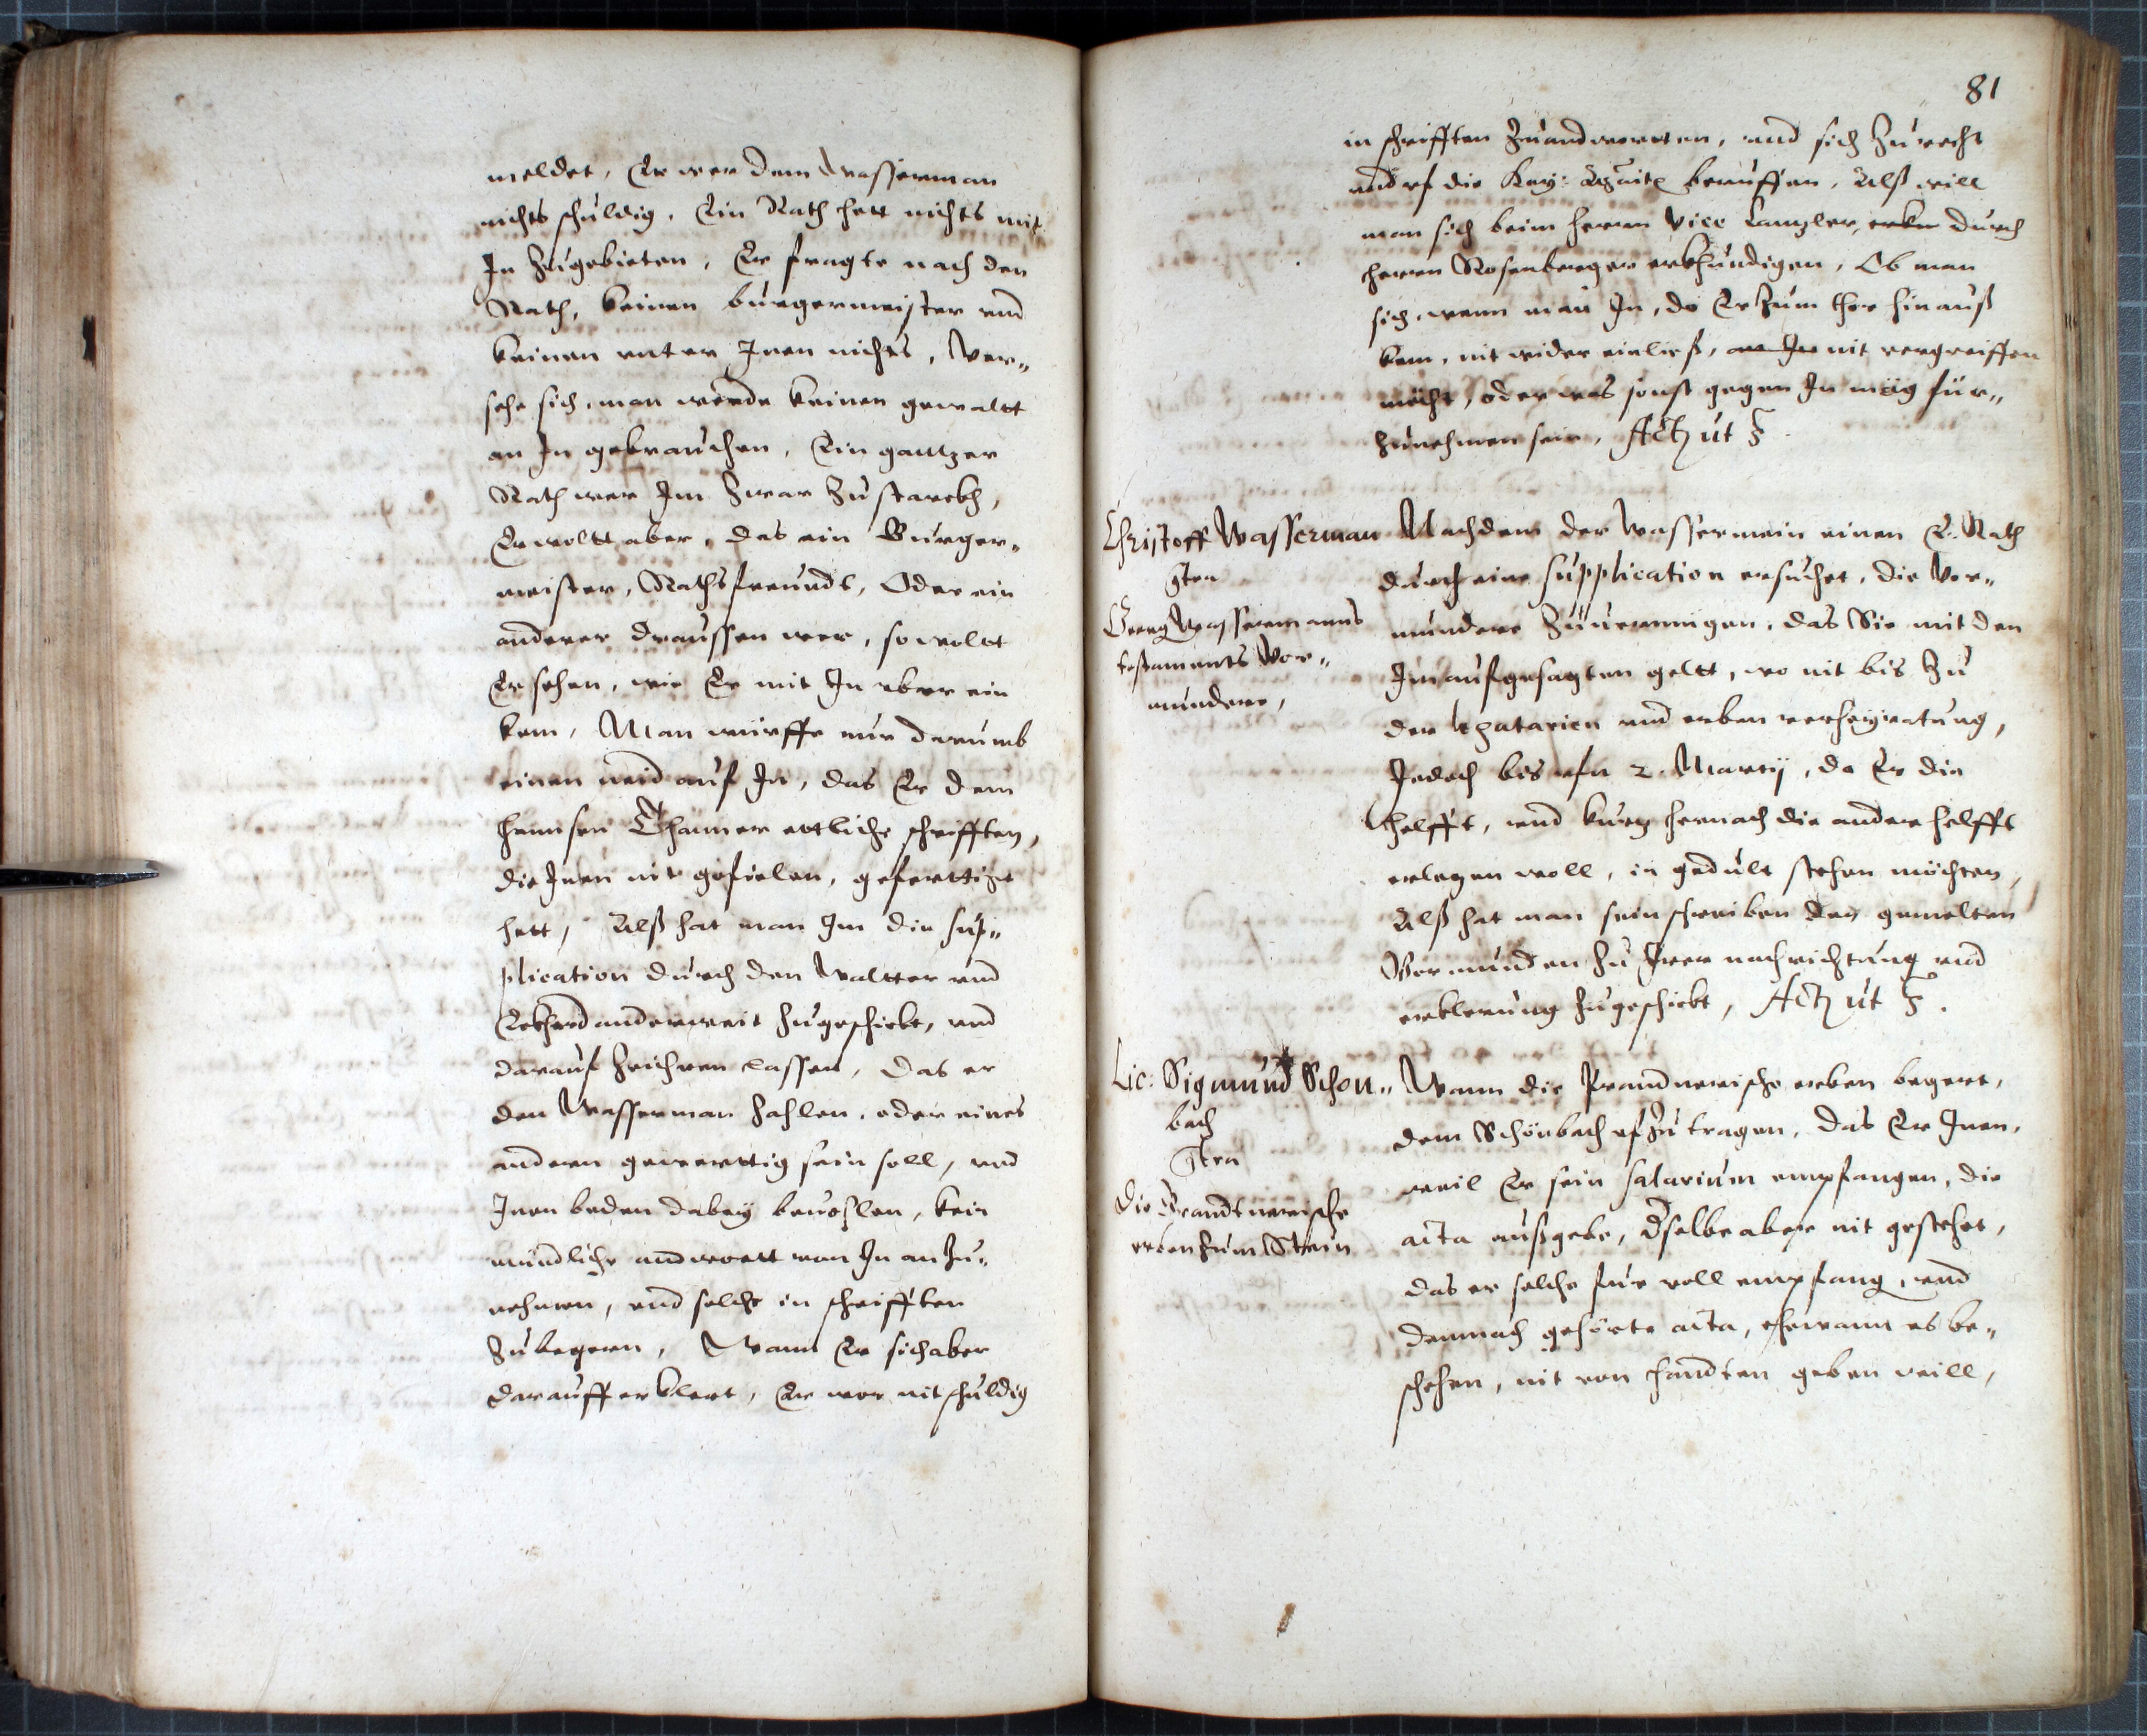 meldet, Er wer dem Wasserman
nichts schuldig, Ein Rath hett nichts mit
Im zugebieten, Er fragte nach den
Rath, keinen burgermeister vnd
keinen vnter Inen nichts, Ver„
sehe sich, man werde keinen gewaltt
an In gebrauchen, Ein gantzer
Rath wer Im zwar zu starckh,
Er woltt aber, das ein Burger„
meister, Rathsfreundt, Oder ein
anderer draussen wer, so woltt
Er sehen, wie Er mit In vber ein
kem, Man wurffe nur darumb
einen neid auf In, das Er dem
Thanner ettliche schrifften,
die Inen nit gefielen, gefertigt
hett, Alß hat man Im die sup„
plication durch den Waltter vnd
Eckhard anderweit zugeschickt, vnd
darauf zeichnen lassen, das er
den Wasserman zahlen, oder eines
andern gewerttig sein soll, vnd
Inen beden dabey beuohlen, kein
mündliche andwortt von In anzu„
nehmen, vnd solche in schrifften
zubegern, Wann Er sich aber
darauff erklert, Er wer nit schuldig
81
in schrifften zuandwortten, vnd sich zu recht
vnd vf die Kay: beruffen, Alß will
man sich beim herrn Vice Canzler, durch
herrn Rosenberger erkhundigen, Ob man
sich, wenn man In, do Er zum thor hinauß
kem, nit wider einließ, nit vergreiffen
möcht, oder was sonst gegen In mög für„
zunehmen sein, Actum ut supra
Christoff Wasserman
gegen
Georg Wassermanns
testaments Vor„
mundere,
Nachdem der Wasserman einen E. Rath
durch eine supplication ersuchet, die Vor„
mundere zuuermögen, das Sie mit den
Im aufgesagten geltt, wo nit bis zu
der legatarien vnd erben verheyratung,
Jedoch bis vfn 2. Martij, do Er die
helfft, vnd kurtz hernach die andere helfft
erlegen woll, in gedult stehen möchten,
Alß hat man sein schreiben den gemelten
Vormunden zu Irer nachrichtung vnd
erklerung zugeschickt, Actum ut supra.
Lic: Sigmund Schon„
bach
gegen
Die Brandtnerische
erben zum Stein
Wann die Prandnerische erben begert,
dem Schönbach vfzutragen, das Er Inen,
weil Er sein salarium empfangen, die
acta außgebe, dselbe aber nit gestehet,
das er solche fur voll empfang, vnd
demnach gehörte acta, ehe wann es be„
schehen, nit von handten geben will,